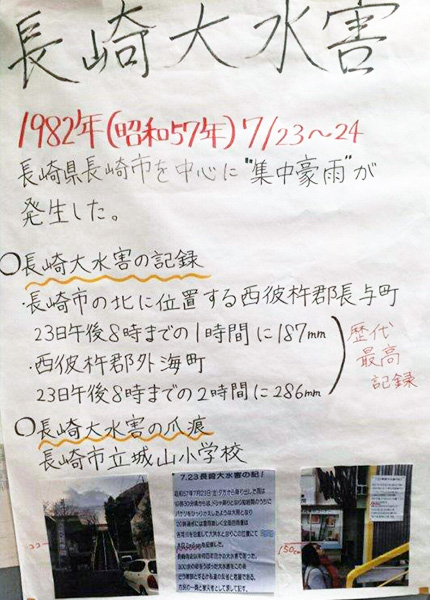 長崎大水害
1982年(昭和57年)7/23～24
長崎県長崎市を中心に"集中豪雨"が
発生した。
○長崎大水害の記録
・長崎市の北に位置する西彼杵郡長与町
23日午後8時までの1時間に187mm
・西彼杵郡外海町
23日午後8時までの2時間に286mm
歴代
最高
記録
○長崎大水害の爪痕
長崎市立城山小学校
7.23長崎大水害の記!
150cm